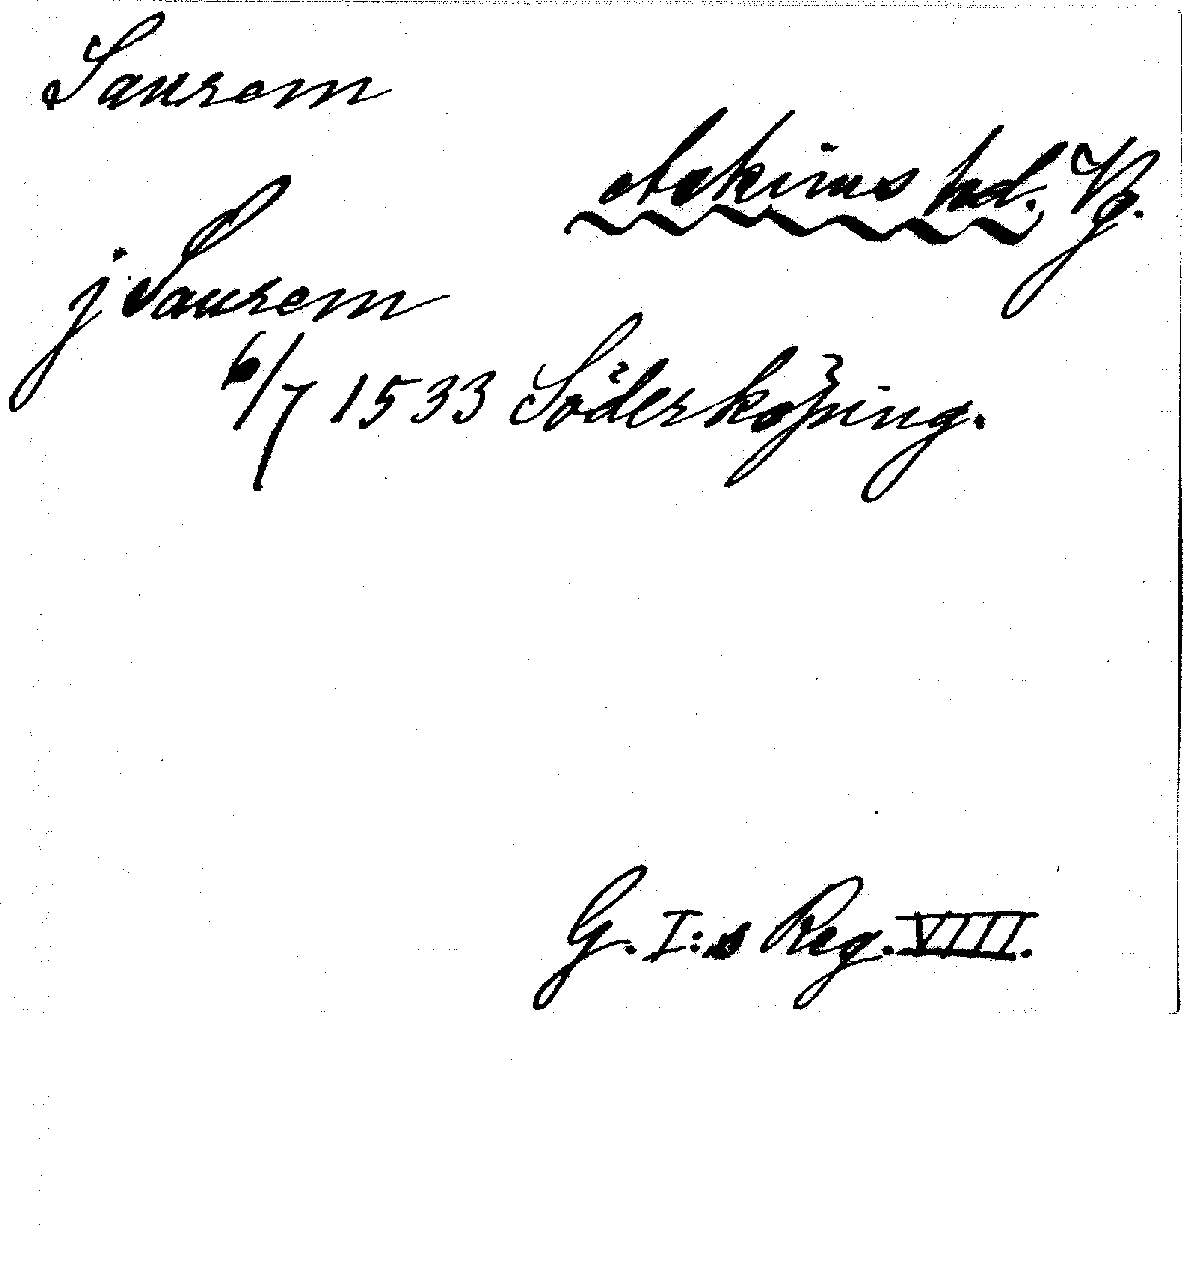 Saurem
Askims hd. Vg.
j Saurem
6/7 1533 Söderköping.
G. I:s Reg. VIII.